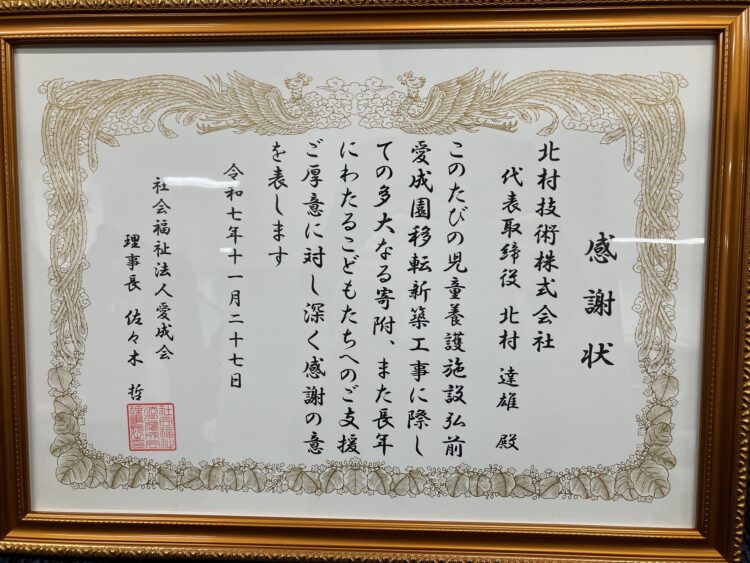 感謝状
北村技術株式会社
代表取締役 北村 達雄 殿
このたびの児童養護施設弘前
愛成園移転新築工事に際し
ての多大なる寄附、また長年
にわたるこどもたちへのご支援
ご厚意に対し深く感謝の意
を表します
令和七年十一月二十七日
社会福祉法人愛成会
理事長 佐々木 哲